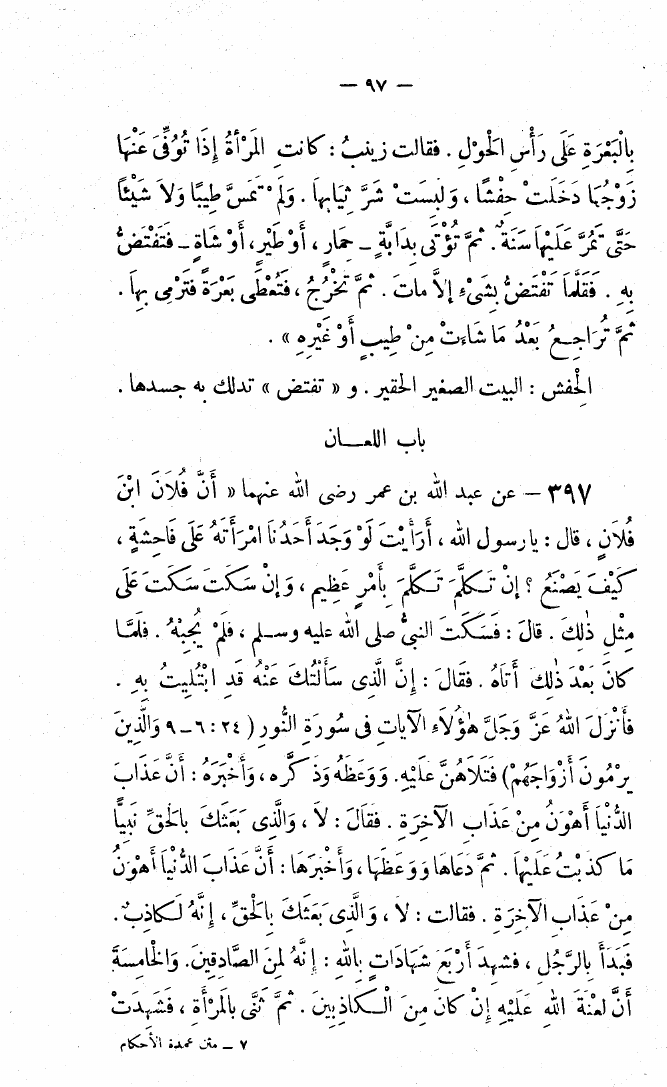 — ٩٧ —
بِالْبَعْرَةِ عَلَى رَأْسِ الْحَوْلِ . فقالت زينبُ : كانتِ الْمَرْأَةُ إِذَا تُوُفِّيَ عَنْهَا
زَوْجُهَا دَخَلَتْ حِفْشًا ، وَلَبِسَتْ شَرَّ ثِيَابِهَا . وَلَمْ تَمَسَّ طِيبًا وَلَا شَيْئًا
حَتَّى تَمُرَّ عَلَيْهَا سَنَةٌ . ثمَّ تُؤْتَى بِدَابَّةٍ - حِمَارٍ ، أَوْ طَيْرٍ ، أَوْ شَاةٍ - فَتَفْتَضُّ
بِهِ . فَقَلَّمَا تَفْتَضُّ بِشَيْءٍ إِلَّا ماتَ . ثمَّ تَخْرُجُ ، فَتُعْطَى بَعْرَةً فَتَرْمِى بِهَا .
ثمَّ تُرَاجِعُ بَعْدُ مَا شَاءَتْ مِنْ طِيبٍ أَوْ غَيْرِهِ » .
الْحِفش : البيت الصغير الحقير . و « تفتض » تدلك به جسدها .
باب اللعـــان
٣٩٧ – عن عبد الله بن عمر رضى الله عنهما « أَنَّ فُلَانَ ابْنَ
فُلَانٍ ، قال : يا رسول الله ، أَرَأَيْتَ لَوْ وَجَدَ أَحَدُنَا امْرَأَتَهُ عَلَى فَاحِشَةٍ ،
كَيْفَ يَصْنَعُ ؟ إِنْ تَكَلَّمَ تَكَلَّمَ بِأَمْرٍ عَظِيمٍ ، وَإِنْ سَكَتَ سَكَتَ عَلَى
مِثْلِ ذٰلِكَ . قالَ : فَسَكَتَ النبيُّ صلى الله عليه وسلم ، فَلَمْ يُجِبْهُ . فلَمَّا
كانَ بَعْدَ ذٰلِكَ أَتَاهُ . فقَالَ : إِنَّ الَّذِى سَأَلْتُكَ عَنْهُ قَدِ ابْتُلِيتُ بِهِ .
فأَنْزَلَ اللهُ عزَّ وَجَلَّ هٰؤُلَاءِ الآيَاتِ فى سُورَةِ النُّورِ ( ٢٤ : ٦ - ٩ وَالَّذِينَ
يَرْمُونَ أَزْوَاجَهُمْ ) فَتَلَاهُنَّ عَلَيْهِ. وَوَعَظَهُ وَذَكَّره ، وَأَخْبَرَهُ : أَنَّ عَذَابَ
الدُّنْيَا أَهْوَنُ مِنْ عَذَابِ الآخِرَةِ . فقَالَ : لَا ، وَالَّذِى بَعَثَكَ بِالْحَقِّ نَبِيًّا
مَا كَذَبْتُ عَلَيْهَا . ثمَّ دَعَاهَا وَوَعَظَهَا ، وَأَخْبَرَهَا : أَنَّ عَذَابَ الدُّنْيَا أَهْوَنُ
مِنْ عَذَابِ الآخِرَةِ . فقالت : لا ، وَالَّذِى بَعَثَكَ بِالْحَقِّ ، إِنَّهُ لَكَاذِبٌ .
فَبَدَأَ بِالرَّجُلِ ، فشهِدَ أَرْبَعَ شَهَادَاتٍ بِاللهِ : إِنَّهُ لَمِنَ الصَّادِقِينَ. وَالْخَامِسَةَ
أَنَّ لَعْنَةَ اللهِ عَلَيْهِ إِنْ كَانَ مِنَ الْكَاذِبِينَ . ثمَّ ثَنَّى بِالْمَرْأَةِ ، فَشَهِدَتْ
٧ - متن عمدة الأحكام